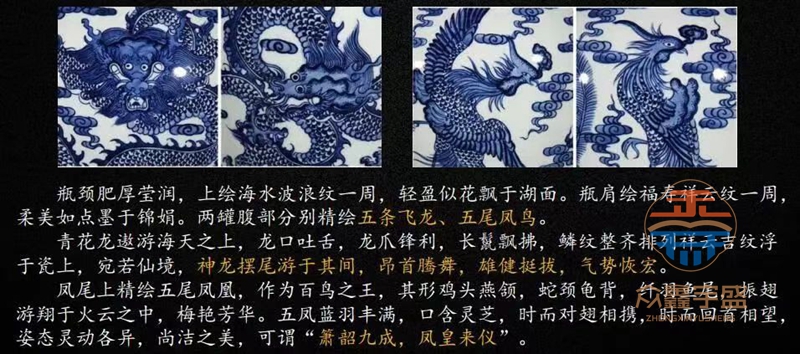 瓶颈肥厚莹润，上绘海水波浪纹一周，轻盈似花飘于湖面。瓶肩绘福寿祥云纹一周，
柔美如点墨于锦娟。两罐腹部分别精绘五条飞龙、五尾凤鸟。
青花龙遨游海天之上，龙口吐舌，龙爪锋利，长鬣飘拂，鳞纹整齐排列祥云吉纹浮
于瓷上，宛若仙境，神龙摆尾游于其间，昂首腾舞，雄健挺拔，气势恢宏。
凤尾上精绘五尾凤凰，作为百鸟之王，其形鸡头燕颔，蛇颈龟背，纤羽鱼尾，振翅
游翔于火云之中，梅艳芳华。五凤蓝羽丰满，口含灵芝，时而对翅相携，时而回首相望，
姿态灵动各异，尚洁之美，可谓“箫韶九成，凤皇来仪”。
众鑫圣盛
ZHENGXINYUSHENG